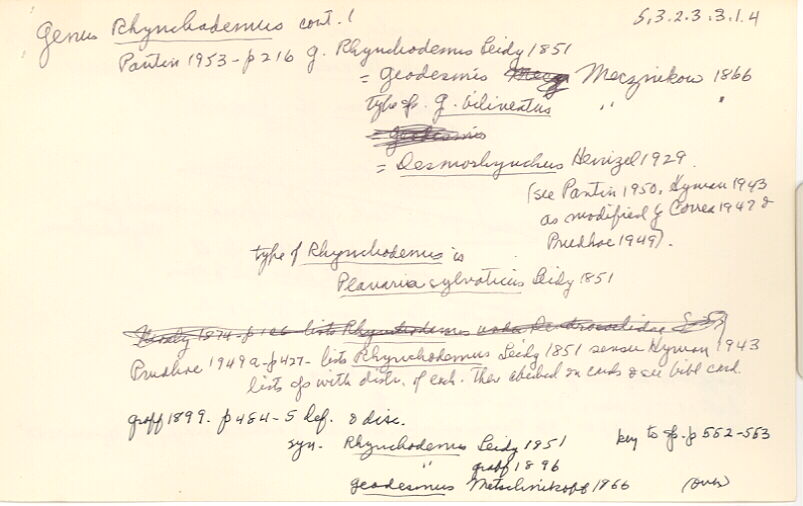 Genus Rhynchodemus cont. 1
5.3.2.3.3.1.4
Pantin 1953 - p 216 g. Rhynchodemus Leidy 1851
= Geodesmis Mecznikow 1866
type sp. G. bilineatus " "
= Desmorhynchus Heinzel 1929.
(see Pantin 1950, Hyman 1943
as modified by Correa 1947 &
Prudhoe 1949).
type of Rhynchodemus is
Planaria sylvaticus Leidy 1851
1874 - p lists Rhynchodemus under
Prudhoe 1949a - p 427 - lists Rhynchodemus Leidy 1851 sensu Hyman 1943
lists sps with distr. of each. These checked on cards & see bibl card.
Graff 1899. p 484-5 def. & disc.
syn. Rhynchodemus Leidy 1851
key to sp. p 552-553
" Graff 1896
Geodesmus Metschnikoff 1866
(over)